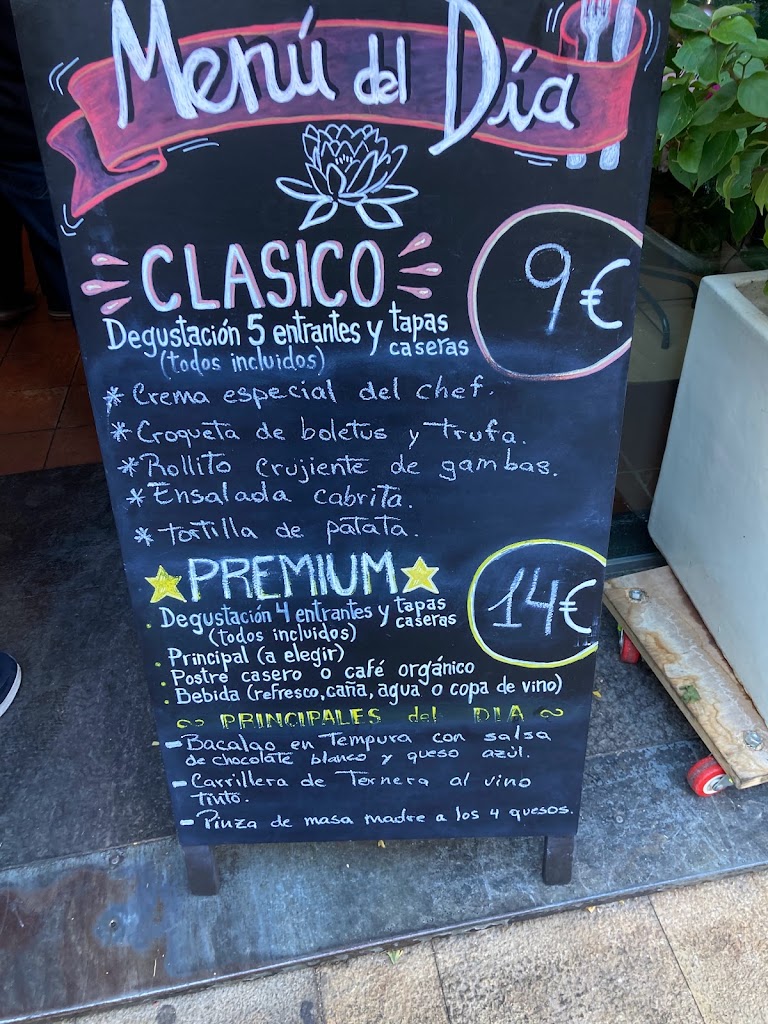 Menú del Día
CLASICO
9€
Degustación 5 entrantes y tapas caseras
(todos incluidos)
* Crema especial del chef.
* Croqueta de boletus y trufa.
* Rollito crujiente de gambas.
* Ensalada cabrita.
* Tortilla de patata.
PREMIUM
14€
Degustación 4 entrantes y tapas caseras
(todos incluidos)
Principal (a elegir)
Postre casero o café orgánico
Bebida (refresco, caña, agua o copa de vino)
~ PRINCIPALES del DIA ~
- Bacalao en Tempura con salsa
de chocolate blanco y queso azúl.
- Carrillera de Ternera al vino
tinto.
- Pinza de masa madre a los 4 quesos.